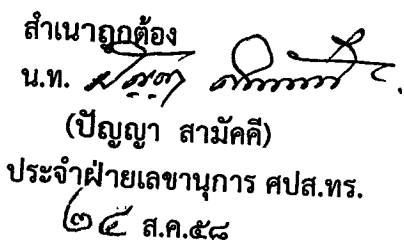 สำเนาถูกต้อง
น.ท.
(ปัญญา สามัคคี)
ประจำฝ่ายเลขานุการ ศปส.ทร.
๒๕ ส.ค.๕๘